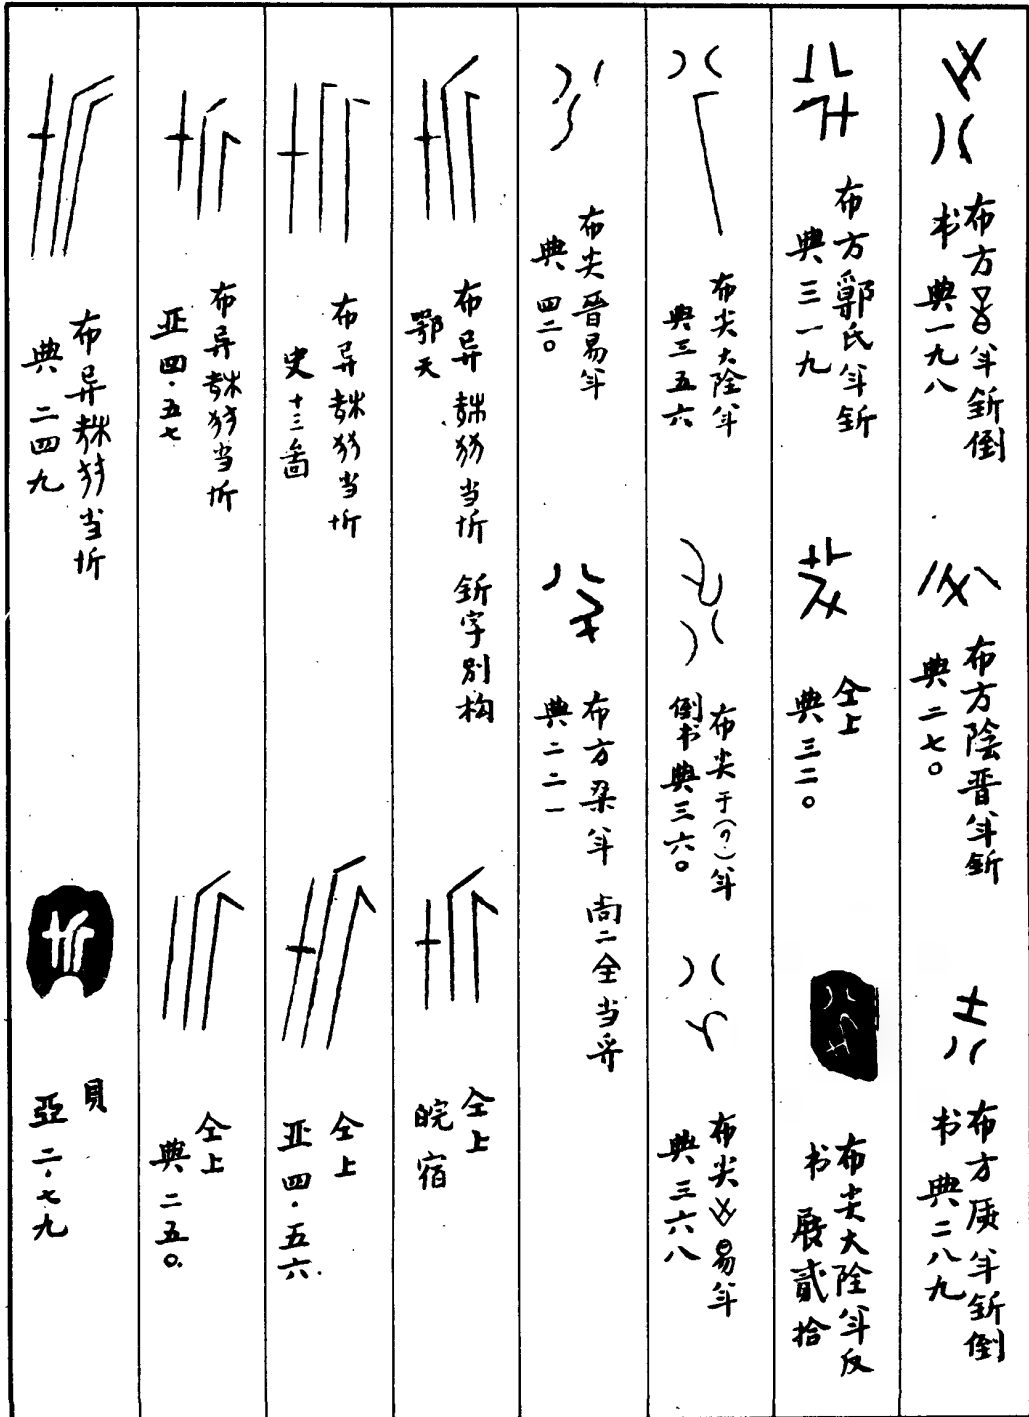 布方𨛜釿倒
书 典一九八
布方陰晋半釿
典二七〇
布方庾半釿倒
书 典二八九
布方鄩氏半釿
典三一九
仝上
典三二〇
布尖大陰半反
书 展貳拾
布尖大陰半
典三五六
布尖于(?)半
倒书典三六〇
布尖易半
典三六八
布尖晋易半
典四二〇
布方梁半 尚二全当寽
典二二一
布异当忻 釿字别构
鄂天
仝上
皖宿
布异当忻
史 十三啚
仝上
亚四·五六
布异当忻
亚四·五七
仝上
典二五〇
布异当忻
典二四九
貝
亞二·七九